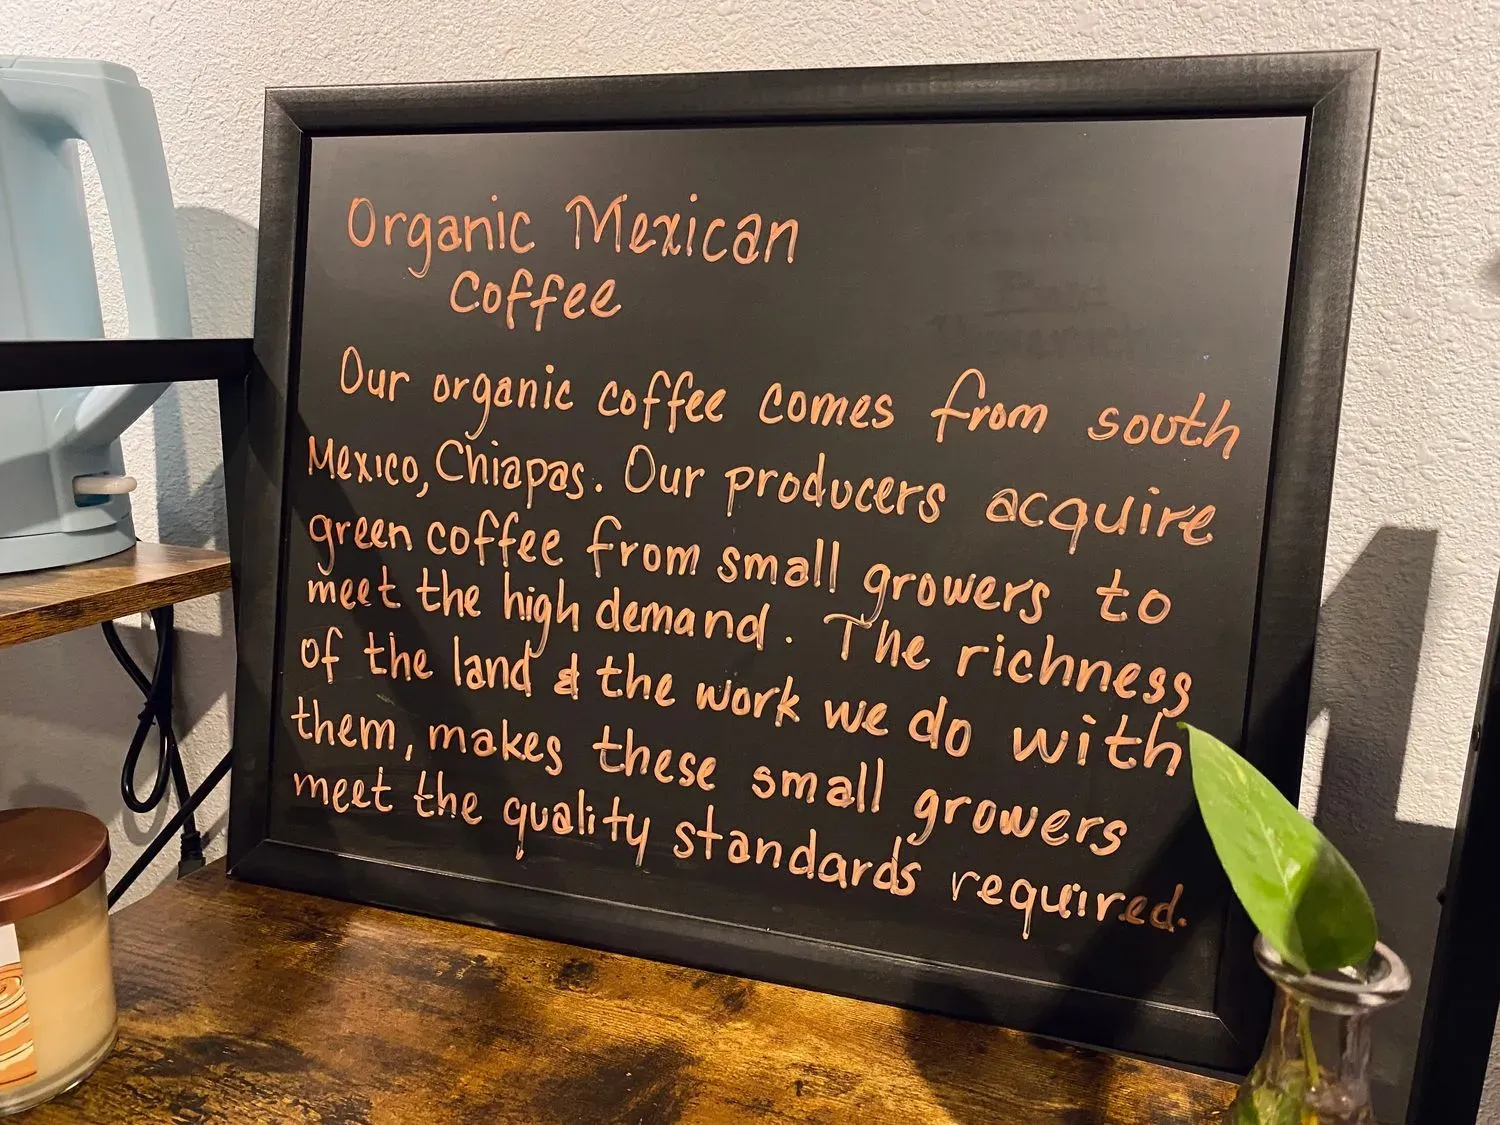 Organic Mexican
Coffee
Our organic coffee comes from south
Mexico, Chiapas. Our producers acquire
green coffee from small growers to
meet the high demand. The richness
of the land & the work we do with
them, makes these small growers
meet the quality standards required.